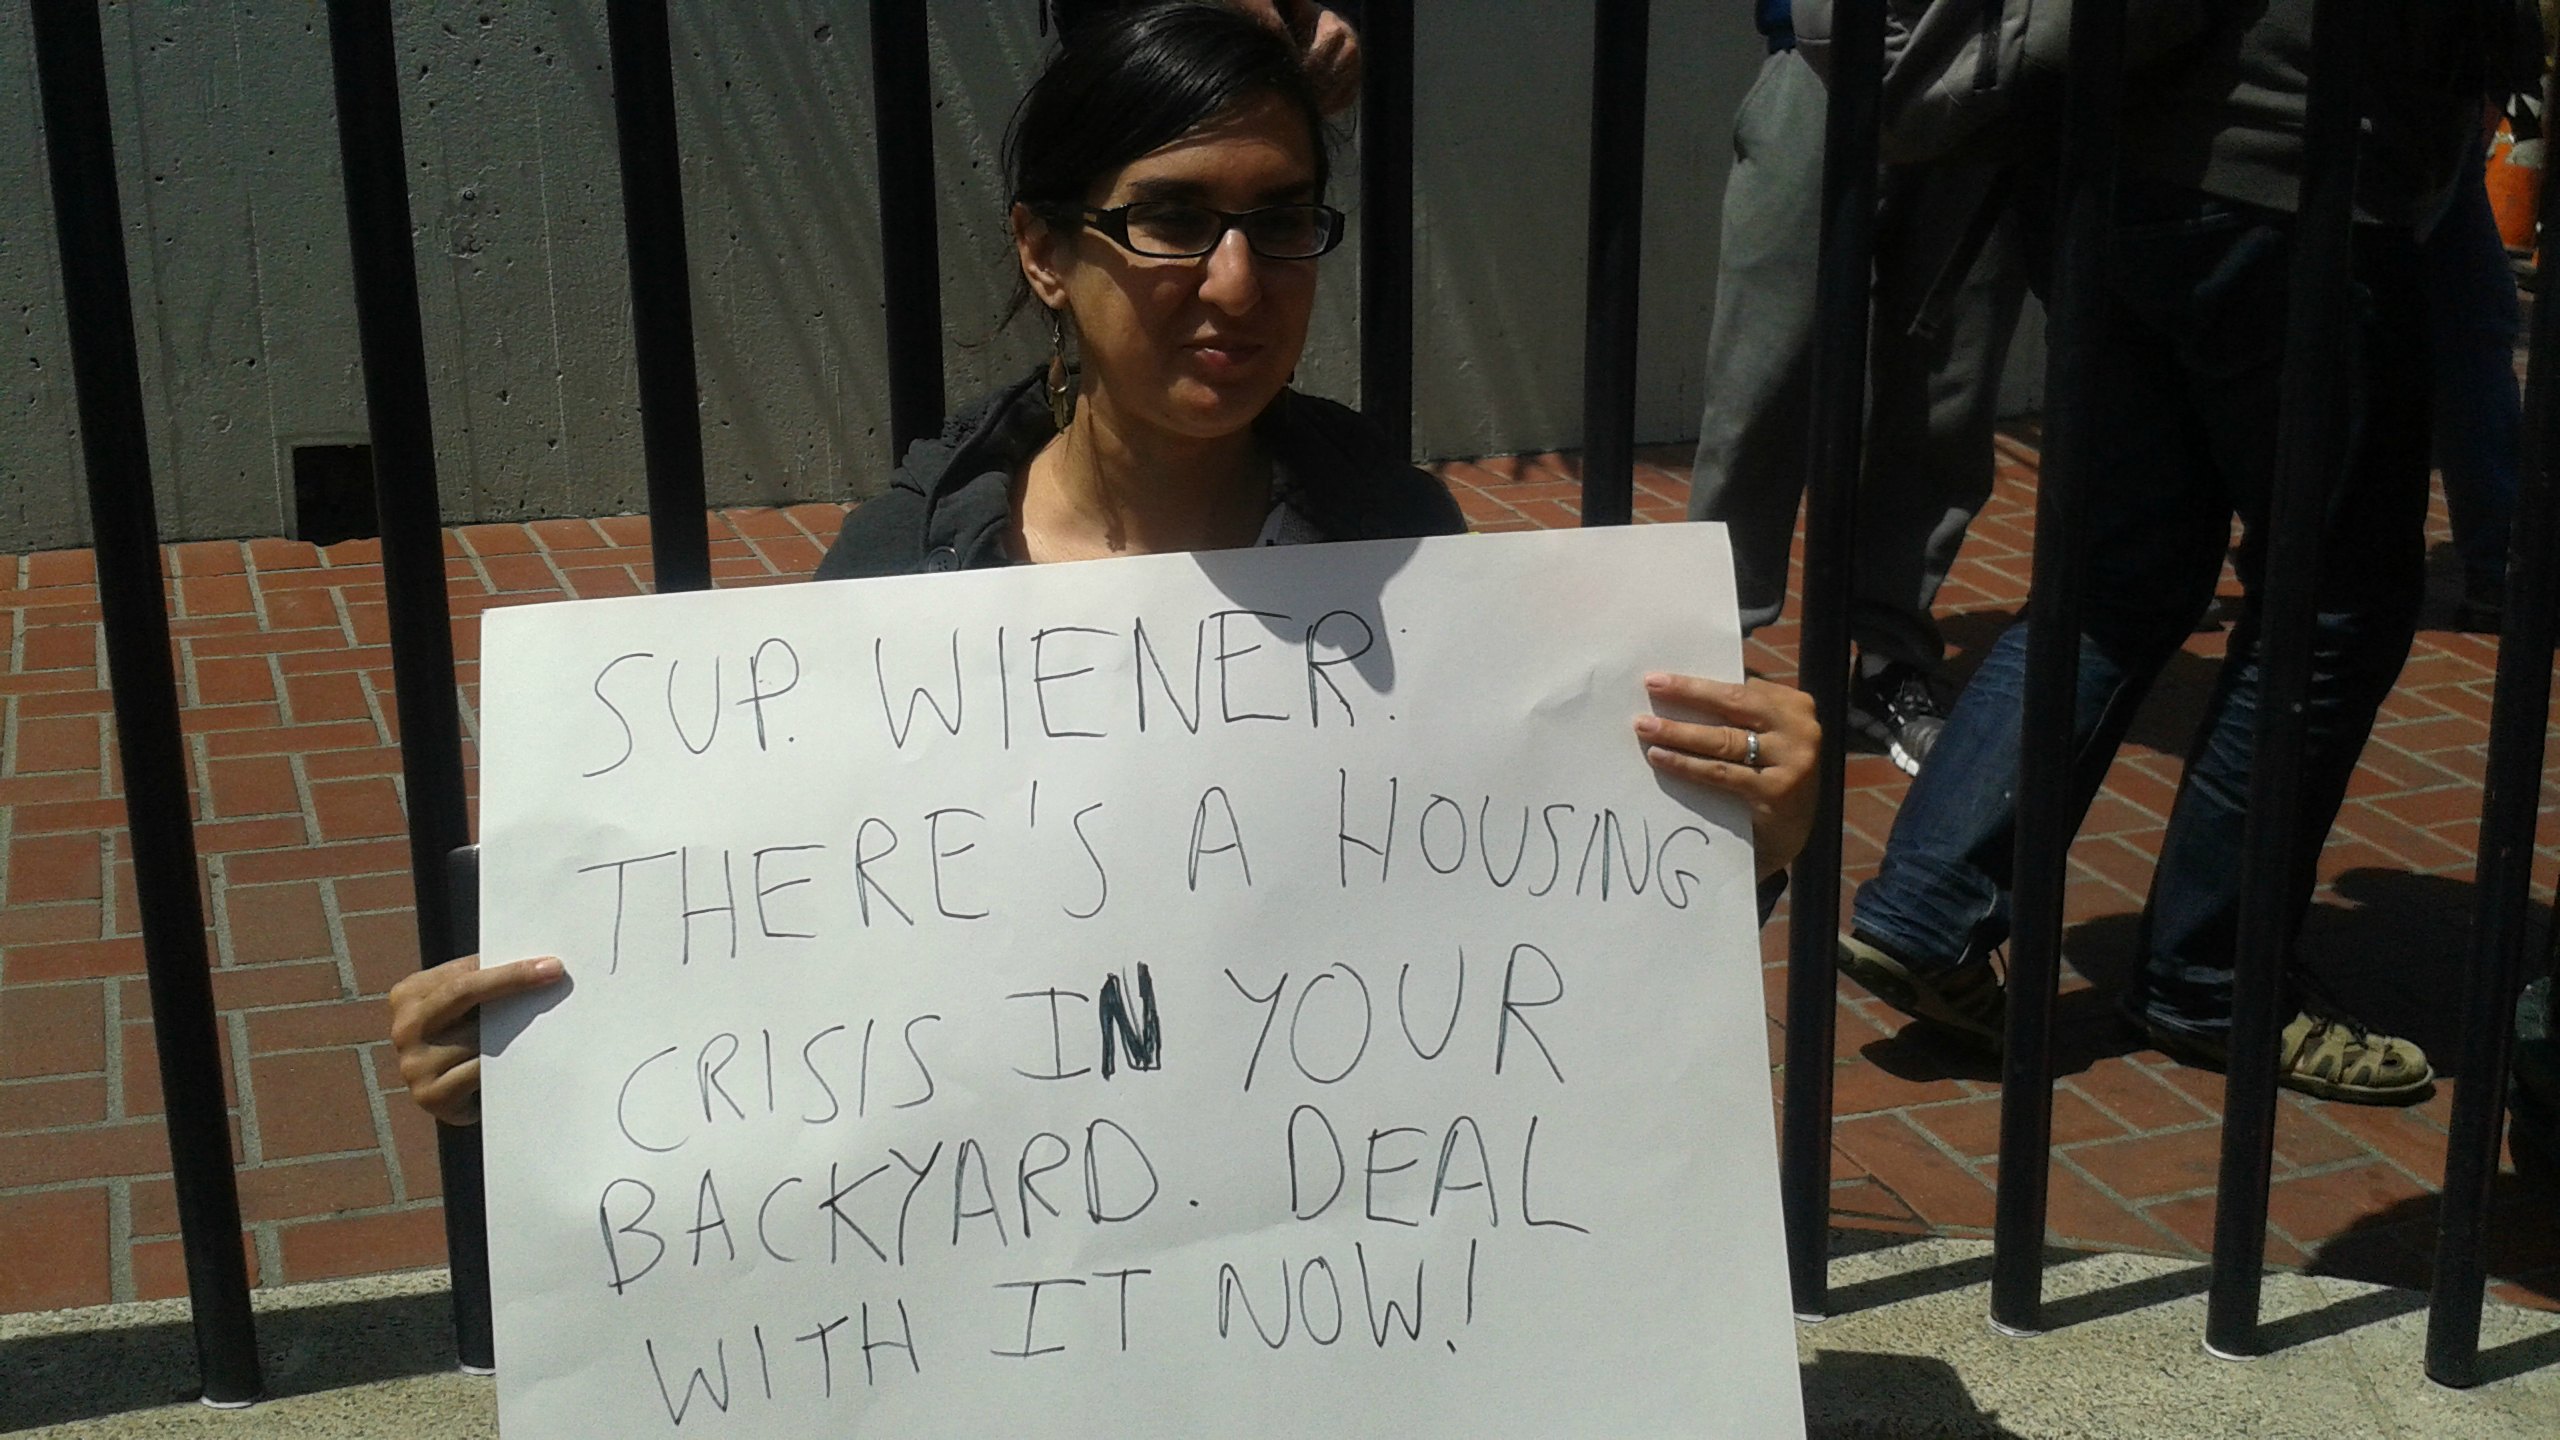 SUP. WIENER:
THERE'S A HOUSING
CRISIS IN YOUR
BACKYARD. DEAL
WITH IT NOW!